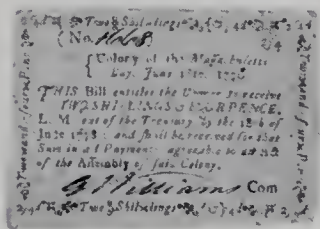 Two Shillings
No.
2/4
Colony of the Massachusetts
Bay, June 18th. 1776
THIS Bill entitles the Owner to receive
TWO SHILLINGS & FOURPENCE,
L. M. out of the Treasury by the 18th of
June 1778; and shall be received for that
Sum in all Payments agreeable to an Act
of the Assembly of said Colony.
Williams Com
2/4 Two Shillings